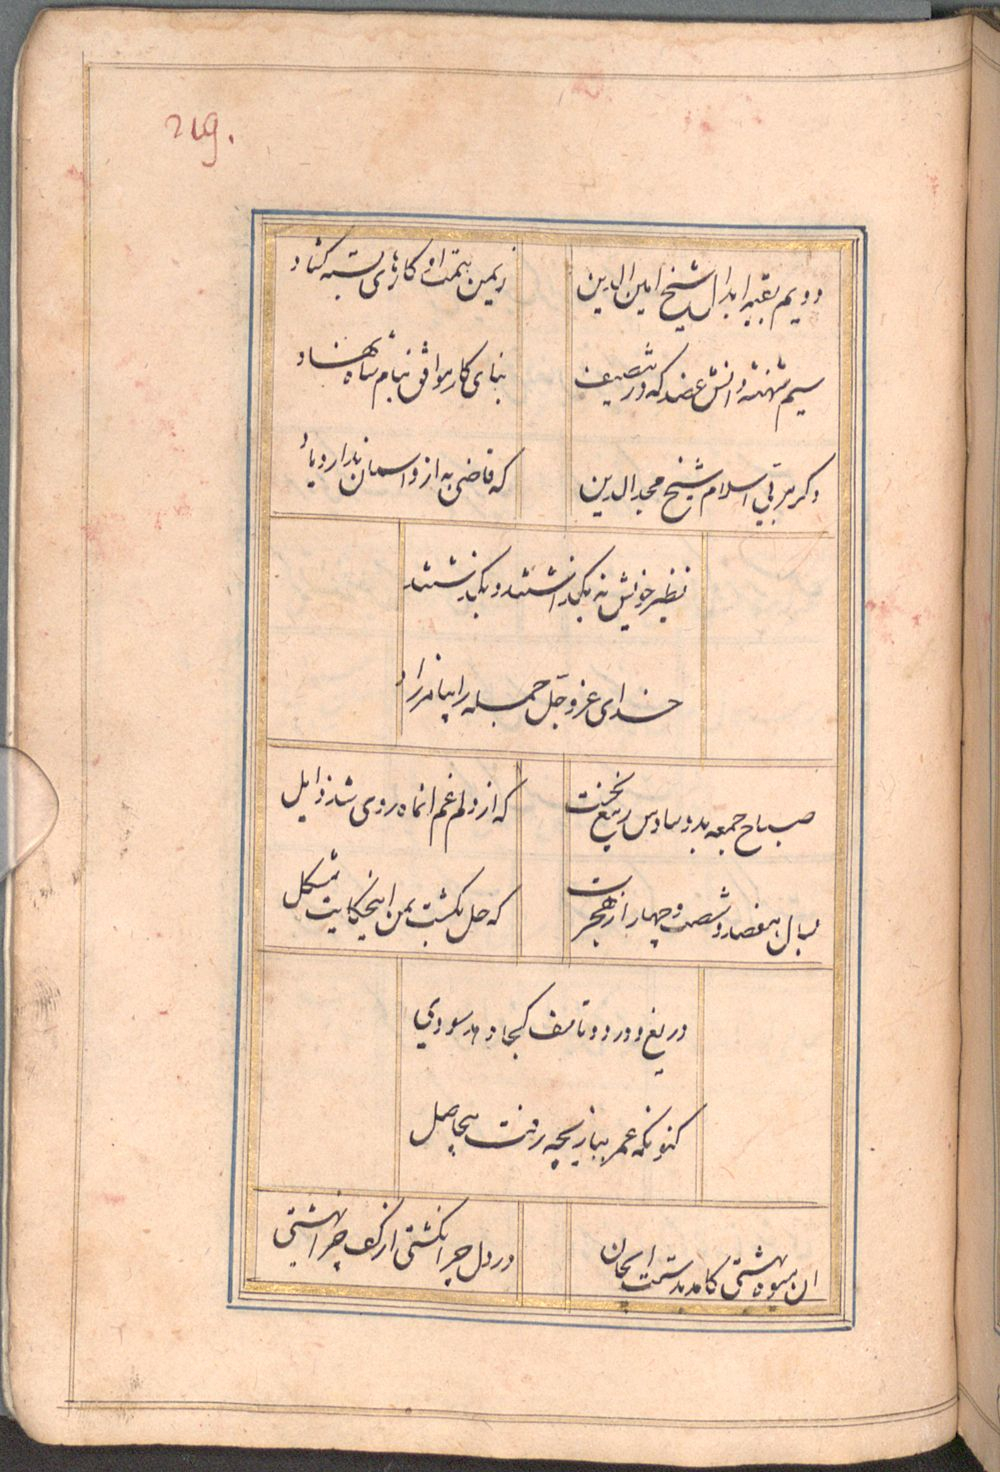 219.
دویم بقیه ابدال شیخ امین الدین
زیمن همت او کارهای بسته کشاد
سیم شهنشه دانش عضد که در تصنیف
بنای کار مواقف بنام شاه نهاد
دکر مربی اسلام شیخ مجد الدین
که قاضی به ازو اسمان ندارد یاد
نظیر خویش نه بکذاشتند و بکذشتند
خدای عز و جل جمله را بیامرزاد
صباح جمعه بد و سادس ربیع نخست
که از دلم غم انماه روی شد زایل
بسال هفصد و شصت و چهار از هجرت
که حل بکشت بمن اینحکایت مشکل
دریغ و درد و تاسف کجا دهد سودی
کنونکه عمر ببازیچه رفت بیحاصل
ان میوه بهشتی کامد بدستت ایجان
در دل چرا نکشتی از کف چرا بهشتی